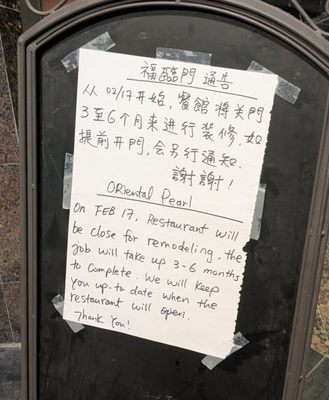 福臨門 通告
从 02/17 开始, 餐館 将关門
3至6个月来进行装修, 如
提前开門, 会另行通知.
謝謝!
Oriental Pearl
On FEB 17, Restaurant will
be close for remodeling, the
job will take up 3-6 months
to complete. We will keep
you up-to date when the
restaurant will open.
Thank You!